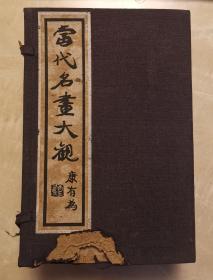 當代名畫大觀
康有為